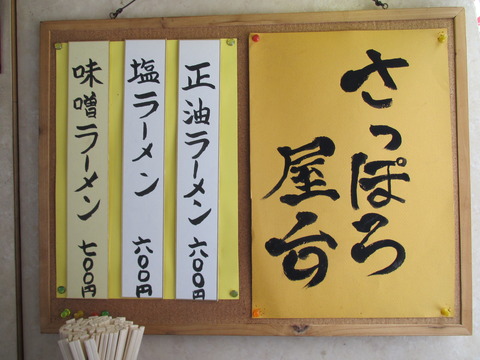 さっぽろ
屋台
正油ラーメン 六〇〇円
塩ラーメン 六〇〇円
味噌ラーメン 七〇〇円